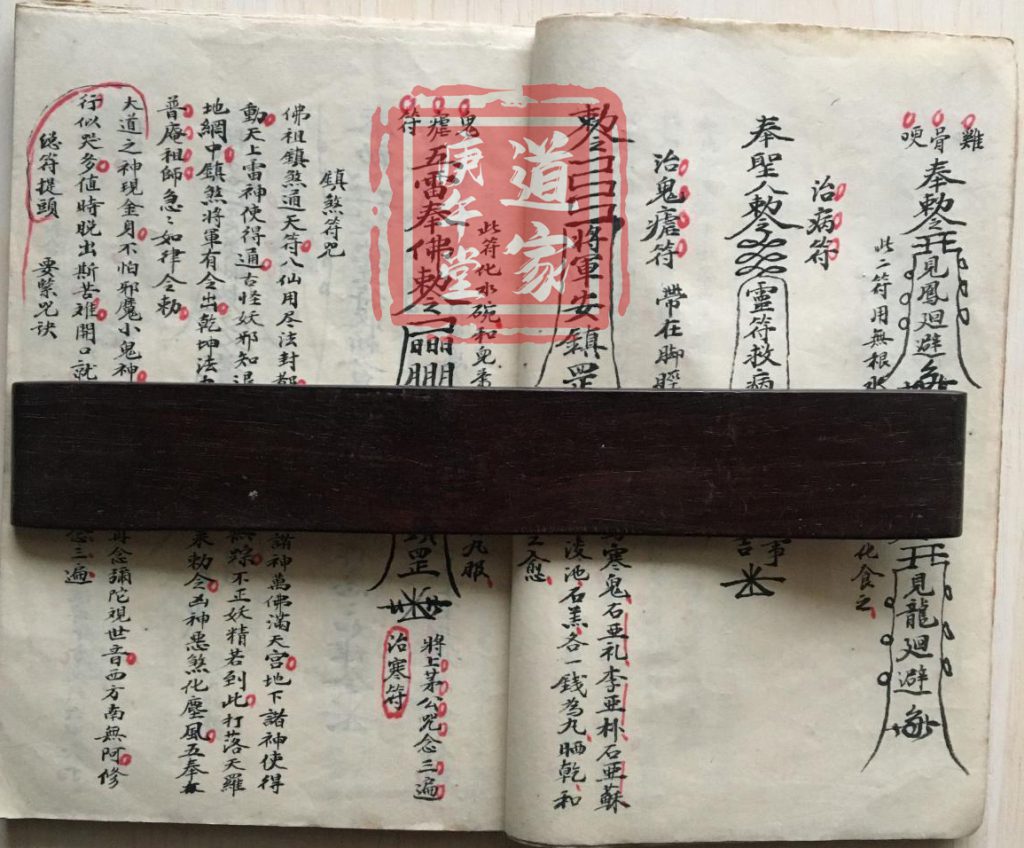 雞骨哽
奉敕令見鳳廻避
此二符用無根水
化食之
見龍廻避
治病符
奉聖八敕令靈符救病
治鬼瘧符 帶在脚
敕令將軍安鎮罡
寒鬼石亞礼李亞朴石亞蘇
石羔各一錢為九晒乾和
之愈
鬼瘧符
五雷奉佛敕令
此符化水碗和
九服
罡
將上茅公咒念三遍
治寒符
鎮煞符咒
佛祖鎮煞通天符八仙用尽法封都
諸神萬佛滿天宮地下諸神使得
動天上雷神使得通古怪妖邪知退
踪不正妖精若到此打落天羅
地網中鎮煞將軍有令出乾坤法
敕令凶神惡煞化壓風五奉
普庵祖師急:如律令敕
大道之神現金身不怕邪魔小鬼神
再念彌陀視世音西方南無阿修
行似哭多值時脱出斯苦难開口就
念三遍
總符提頭 要緊咒訣
道家
庚午堂